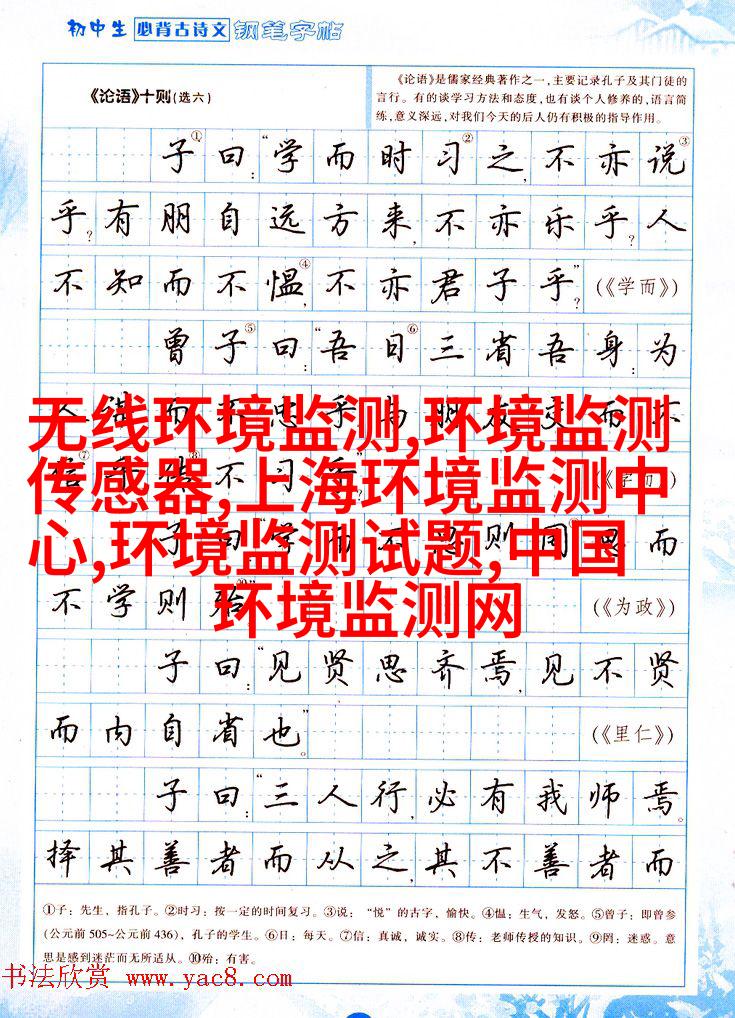 初中生 必背古诗文 钢笔字帖
《论语》十则(选六)
《论语》是儒家经典著作之一，主要记录孔子及其门徒的
言行。有的谈学习方法和态度，也有谈个人修养的，语言简
练，意义深远，对我们今天的后人仍有积极的指导作用。
子①曰：“学而时习②之，不亦说③
乎？有朋自远方来，不亦乐乎？人
不知而不愠④，不亦君子乎？” (《学而》)
曾子⑤曰：“吾日⑥三省吾身：为
人谋而不忠乎 与朋友交而不
不习
子曰 学而不 则罔 思而
不学则殆⑩” (《为政》)
子曰：“见贤思齐焉，见不贤
而内自省也。” (《里仁》)
子曰：“三人行，必有我师焉。
择其善者而从之，其不善者而
①子：先生，指孔子。②时习：按一定的时间复习。③说：“悦”的古字，愉快。④愠：生气，发怒。⑤曾子：即曾参
(公元前505~公元前436)，孔子的学生。⑥日：每天。⑦信：真诚，诚实。⑧传：老师传授的知识。⑨罔：迷惑。意
思是感到迷茫而无所适从。⑩殆：有害。
无线环境监测,环境监测
传感器,上海环境监测中
心,环境监测试题,中国
环境监测网
书法欣赏 www.yac8.com